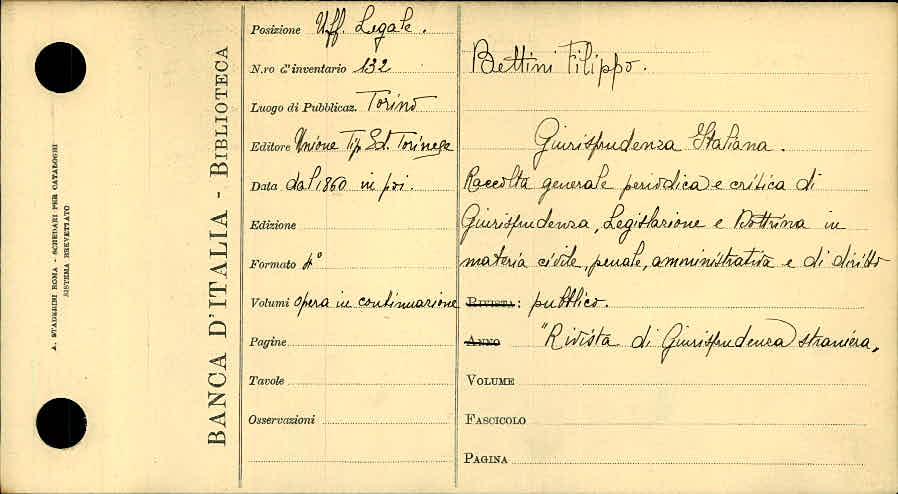 A. STADERINI ROMA - SCHEDARI PER CATALOGHI
SISTEMA BREVETTATO
BANCA D'ITALIA - BIBLIOTECA
Posizione Uff. Legale.
N.ro d'inventario 132
Luogo di Pubblicaz. Torino
Editore Unione Tip. Ed. Torinese
Data dal 1860 in poi.
Edizione
Formato 4°
Volumi opera in continuazione
Pagine
Tavole
Osservazioni
Bettini Filippo.
Giurisprudenza Italiana.
Raccolta generale periodica e critica di
Giurisprudenza, Legislazione e Dottrina in
materia civile, penale, amministrativa e di diritto
RIVISTA: pubblico.
ANNO "Rivista di Giurisprudenza straniera,
VOLUME
FASCICOLO
PAGINA